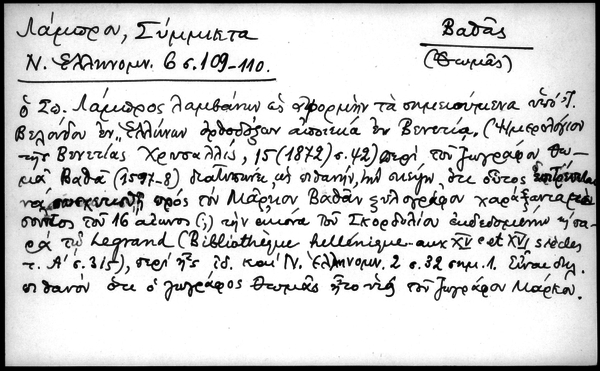 Λάμπρου, Σύμμικτα
Βαθᾶς
Ν. Ἑλληνομν. 6 σ. 109-110.
(Θωμᾶς)
ὁ Σπ. Λάμπρος λαμβάνων ὡς ἀφορμὴν τὰ σημειούμενα ὑπὸ Ἰ.
Βελούδου ἐν „Ἑλλήνων ὀρθοδόξων ἀποικία ἐν Βενετίᾳ, (Ἡμερολόγιον
τῆς Βενετίας Χρυσαλλίς, 15 (1872) σ. 42) περὶ τοῦ ζωγράφου Θω-
μᾶ Βαθᾶ (1597-8) διατυπώνει, ὡς πιθανήν, τὴν σκέψη, ὅτι οὗτος
πρὸς τὸν Μᾶρκον Βαθᾶν ξυλογράφον χαράξαντα
τοῦ 16 αἰῶνος (;) τὴν εἰκόνα τοῦ Σκορδυλίου ἐκδεδομένην πα-
ρὰ τῷ Legrand (Bibliothèque hellénique aux XV et XVI siècles
τ. Α' σ. 315), περὶ ἧς ἰδ. καὶ Ν. Ἑλληνομν. 2 σ. 32 σημ. 1. Εἶναι δηλ.
πιθανὸν ὅτι ὁ ζωγράφος Θωμᾶς ἦτο υἱὸς τοῦ ζωγράφου Μάρκου.